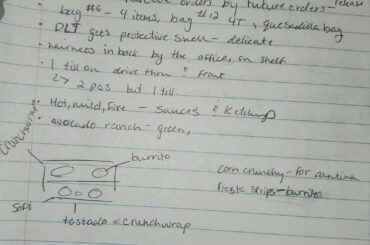 orders by future orders - release
bag #6 - 4 items, bag #12 4T + quesadilla bag
DLT gets protective shell - delicate
in back by the office, on shelf
1 till on drive thru & front
↳ 2 pos but 1 till
Hot, mild, fire - sauces & ketchup
avocado ranch - green,
crunchwrap
burrito
corn crunchy - for cantina
fiesta strips - burritos
soft
tostado = crunchwrap